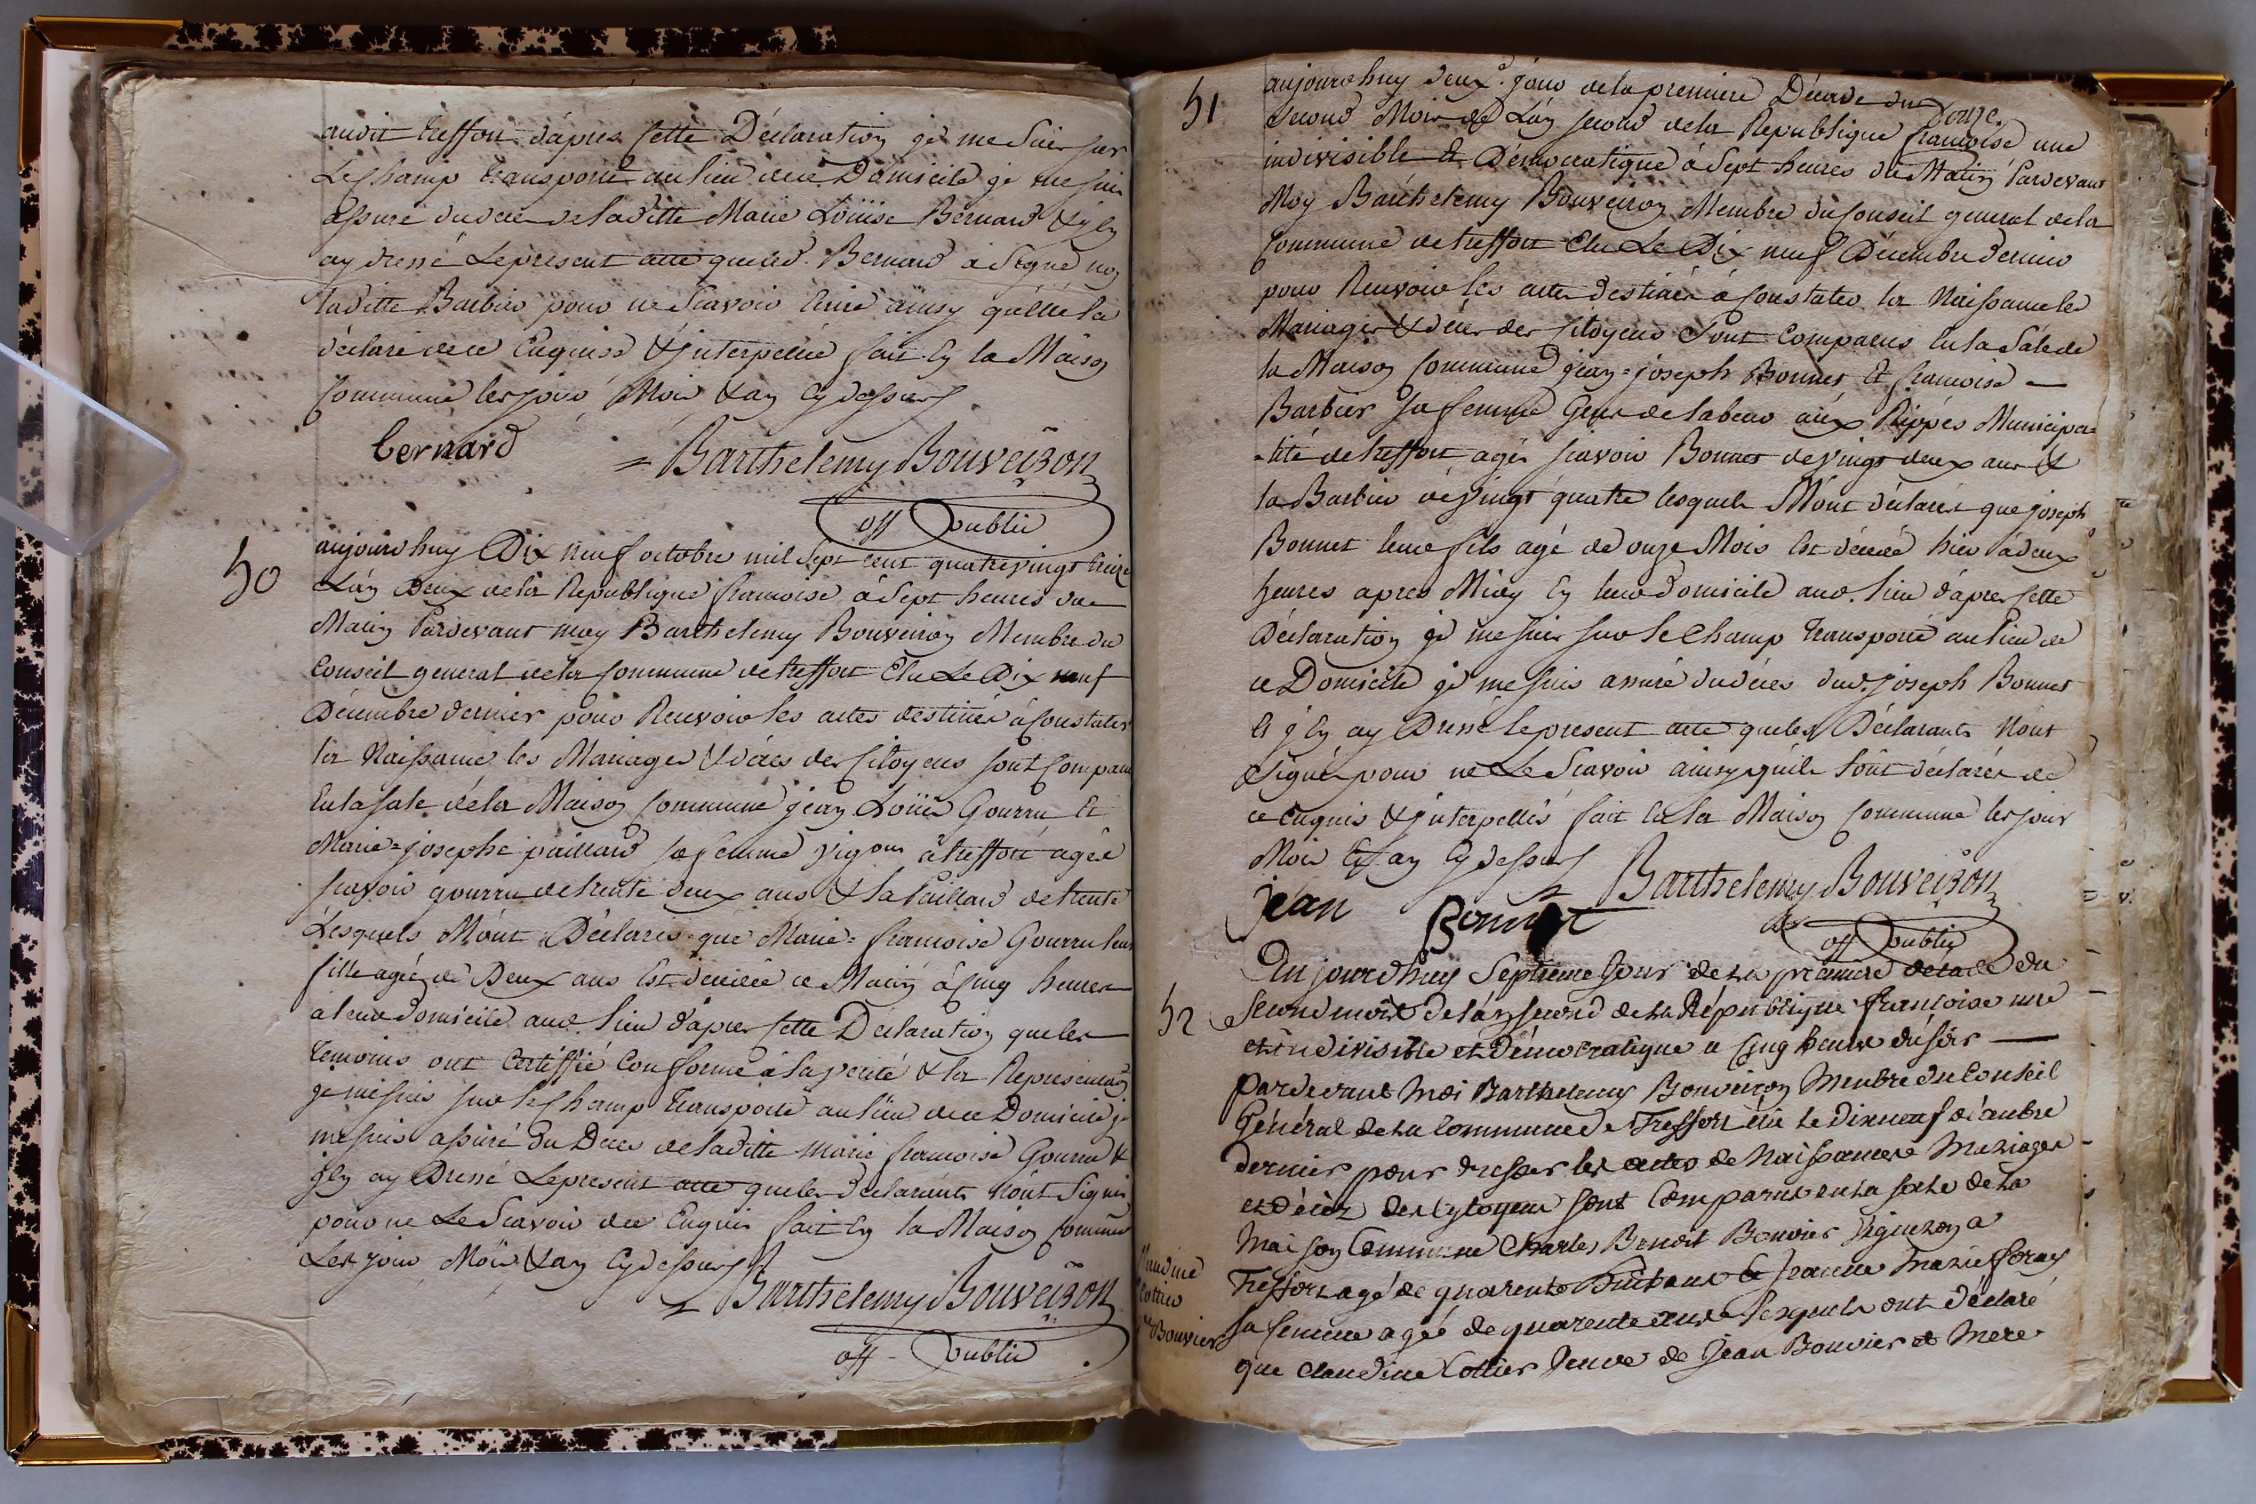 audit treffort d'apres cette Déclaration je me Suis sur
Le Champ transporté au lieu dece Domicile je me suis
assuré du decé de laditte Marie Loüise Bernard & j'en
ay dressé Le présent acte que led. Bernard à Signé non
laditte Barbier pour ne Scavoir Ecrire ainsy qu'elle la
déclaré dece Enquise & jnterpellée fait En la Maison
Commune les jour Mois & an Cy dessus
bernard
= Barthelemy Bouveiron
off public
50
aujourdhuy Dix neuf octobre mil Sept cent quatrevingt treize
L'an Deux dela Republique francoise à Sept heures du
Matin Pardevant moy Barthelemy Bouveiron Membre du
Conseil general dela Commune de treffort Elu Le Dix neuf
Décembre dernier pour Recevoir les actes destinés à Constater
la Naissance les Mariages & déces des Citoyens sont Comparu
En la sale dela Maison Commune jean Loüis Gourru Et
Marie=josephe paillard sa femme vigons à treffort agés
scavoir gourru de trente deux ans & la Paillard de trente
Lesquels M'ont Déclarés que Marie= francoise Gourru leur
fille agée de Deux ans Est decedée ce Matin à Cinq heures
a leur domicile aud. lieu d'apres cette Déclaration que les
temoins ont Certiffié Conforme à la verité & la Representation
je me suis sur le Champ transporté au lieu dece Domicile je
me suis assuré du Deces de laditte marie francoise Gourru &
j'en ay Dressé Le present acte que les declarants n'ont Signés
pour ne Le Scavoir dece Enquis fait En la Maison Commune
Les jour Mois & an Cy dessus
= Barthelemy Bouveiron
off - public
51
aujourdhuy deux.e jour dela premiere Décade du
Second Mois de L'an second dela Republique francoise une
indivisible et Démocratique à Sept heures du Matin Pardevant
Moy Barthelemy Bouveiron Membre du Conseil general dela
Commune de treffort Elu Le Dix neuf Décembre dernier
pour Recevoir les actes destinés à Constater la Naissance les
Mariages & déces des Citoyens Sont Comparus En la Sale de
la Maison Commune jean=joseph Bonnet Et francoise
Barbier sa femme Gens de labeur aux Rippes Municipa=
=lité de treffort agés scavoir Bonnet de vingt deux ans &
la Barbier de vingt quatre lesquels M'ont déclarés que joseph
Bonnet leur fils agé de onze Mois Est décedé hier à deux
heures apres Midy En leur domicile aud. lieu d'apres cette
Déclaration je me suis sur le Champ transporté au lieu de
ce Domicile je me suis assuré du déces dud. joseph Bonnet
Et j'En ay Dressé le present acte que les Déclarants N'ont
Signés pour ne Le Scavoir ainsy qu'ils l'ont déclarés de
ce enquis & jnterpellés fait En la Maison Commune les jour
Mois Et an Cy dessus
= Barthelemy Bouveiron
jean Bonnet
off public
52
Aujourdhuy Septieme Jour de la premiere décade du
Second mois de l'an second de la République francoise une
et indivisible et Démocratique a Cinq heures du soir
pardevant Moi Barthelemy Bouveiron Membre du Conseil
Général de la Commune de Treffort élu le Dixneuf décembre
dernier pour dresser les actes de Naissances Mariages
et Décès des Cytoyens sont Comparus en la sale de la
Maison Commune Charles Benoit Bouvier Vigneron a
Treffort agé de quarente huit ans & Jeanne Marie foray
sa femme agée de quarente ans lesquels ont déclaré
que claudine Cottier Veuve de Jean Bouvier et Mere
Claudine
Cottier
Bouvier